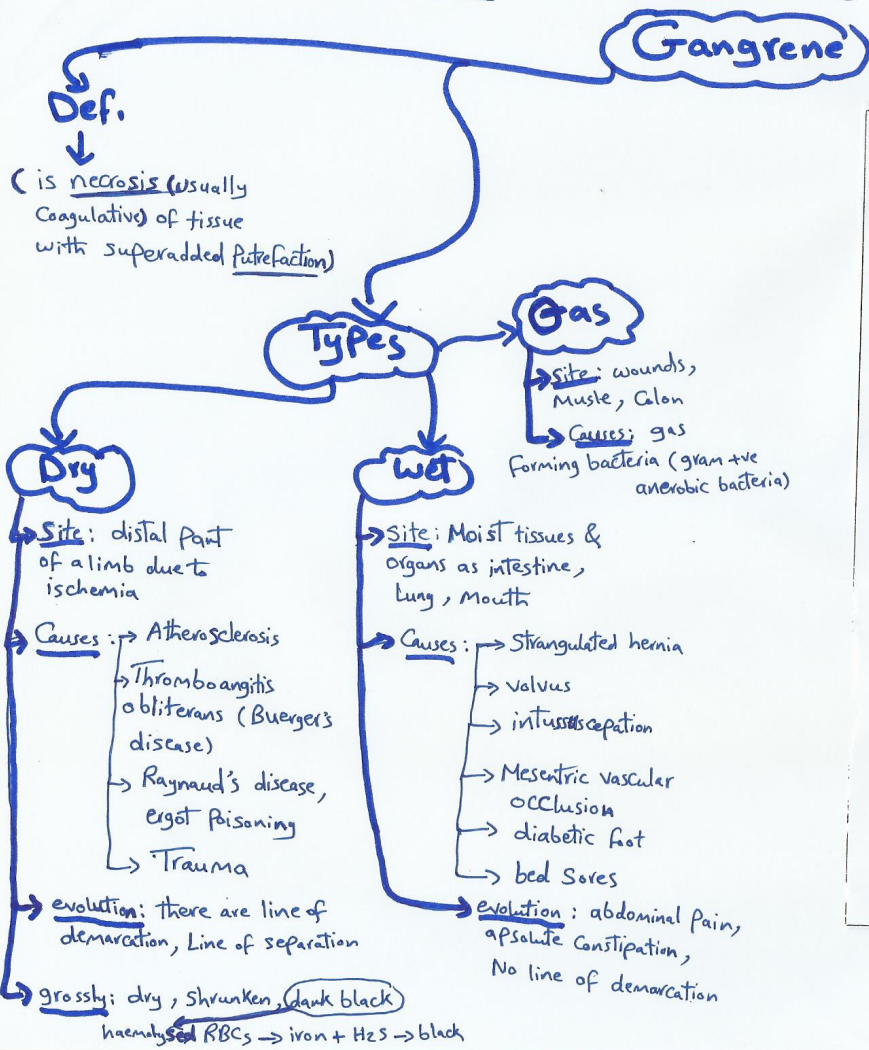 Gangrene
Def.
( is necrosis (usually
Coagulative) of tissue
with superadded Putrefaction)
Types
Gas
Site: wounds,
Musle, Colon
Causes: gas
Forming bacteria (gram +ve
anerobic bacteria)
Dry
Site: distal Part
of a limb due to
ischemia
Causes:
Atherosclerosis
Thromboangitis
obliterans (Buerger's
disease)
Raynaud's disease,
ergot Poisoning
Trauma
evolution: there are line of
demarcation, Line of separation
grossly: dry, Shrunken, dark black
haemolysed RBCs → iron + H2S → black
Wet
Site: Moist tissues &
organs as intestine,
Lung, Mouth
Causes:
Strangulated hernia
volvus
intussuscepation
Mesentric vascular
occlusion
diabetic foot
bed Sores
evolution: abdominal Pain,
apsolute Constipation,
No line of demarcation